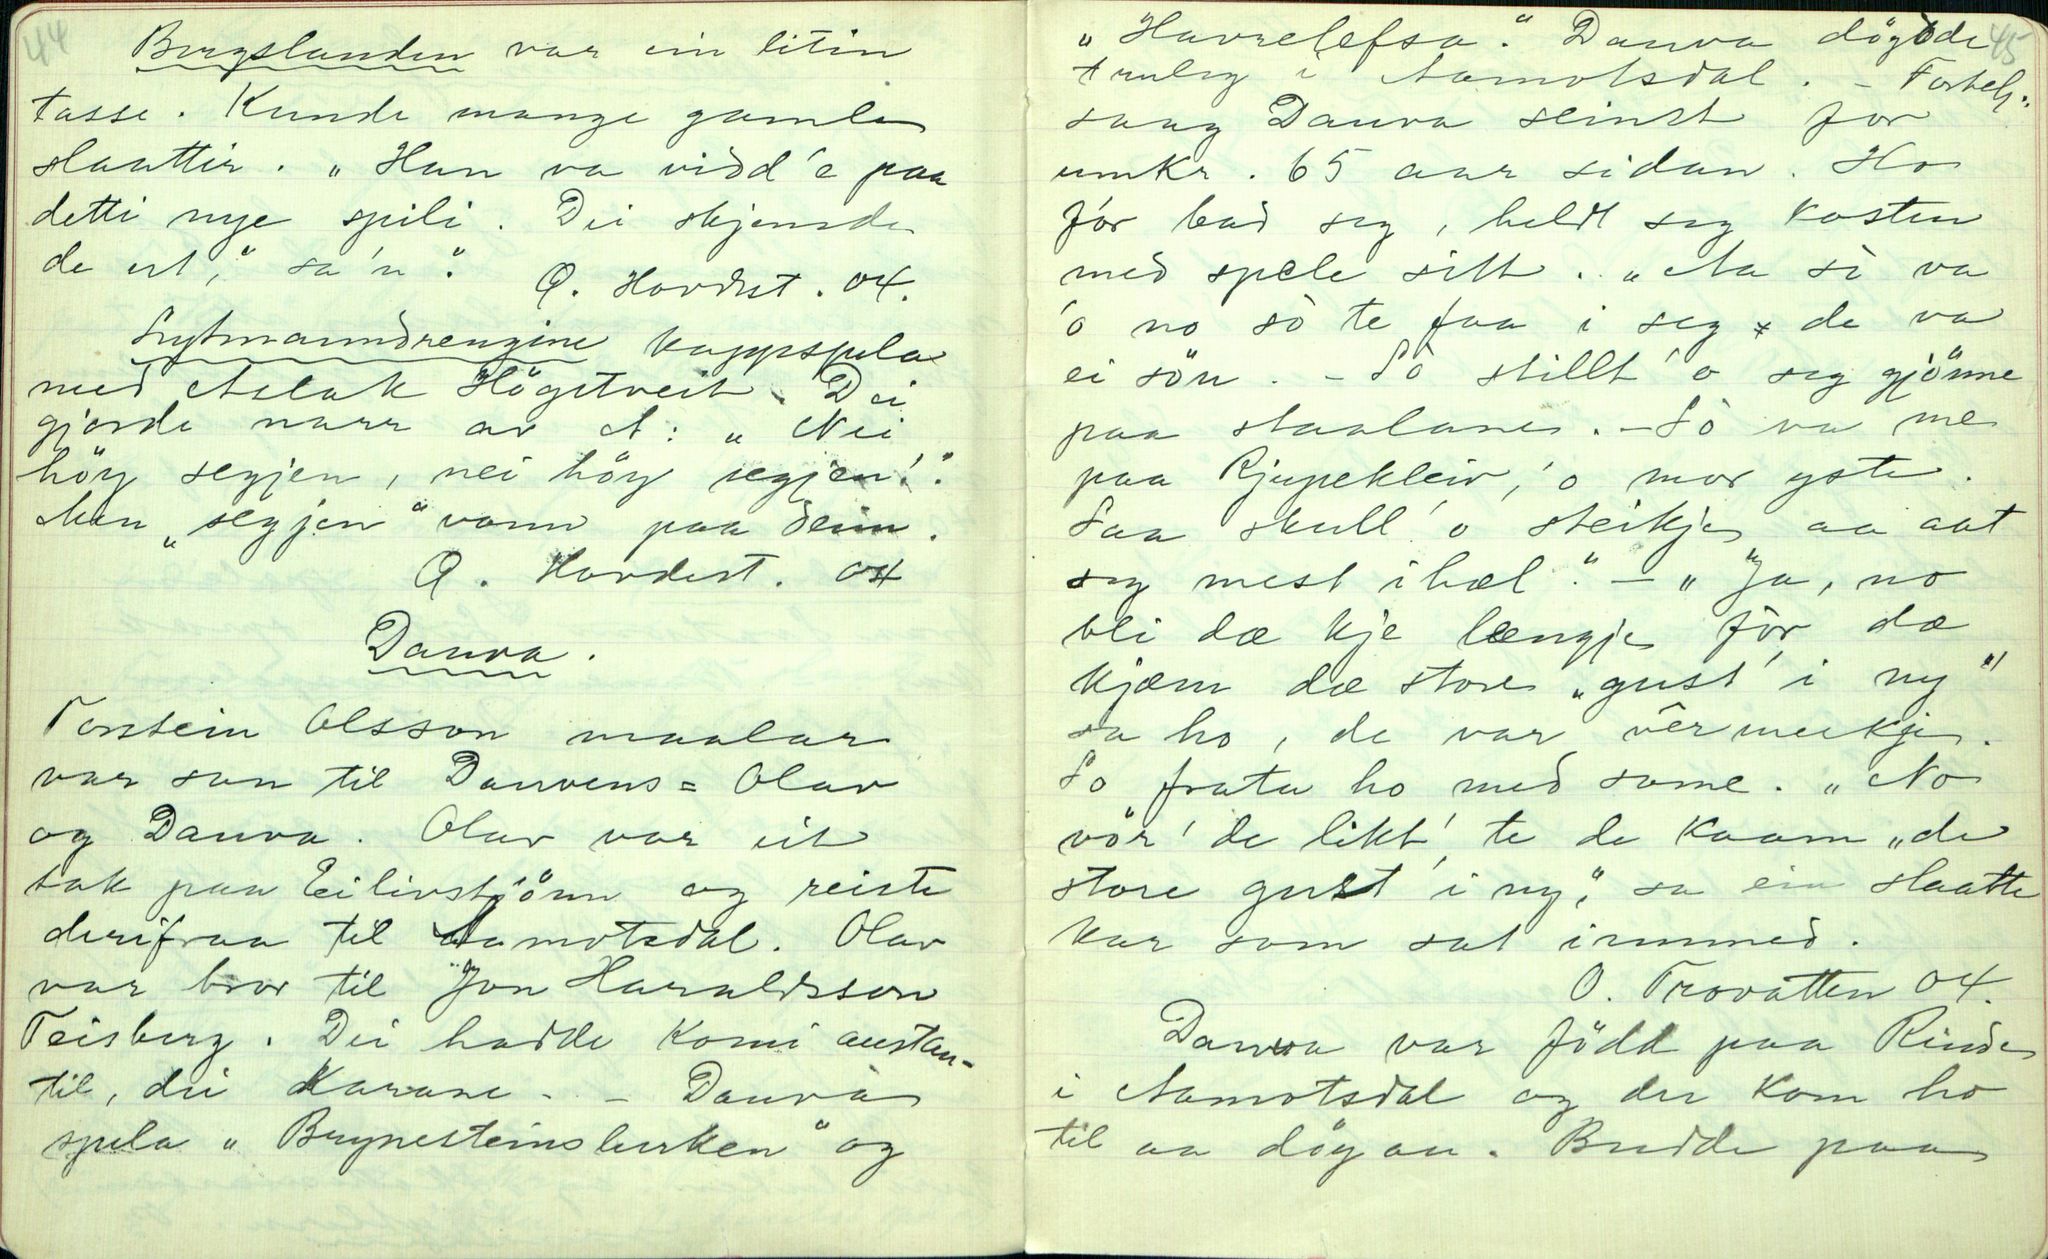 44
Bergslanden var ein litin
tasse. Kunde mange gamle
slaattir. „Han va vidd'e paa
detti nye spili. Dei skjemde
de ut," sa'n".
Q. Hovdest. 04.
Lytmanndrengine kappspela
med Aslak Högetveit. Dei
gjorde narr av A: „Nei
höy segjen, nei höy segjen!".
Men „segjen" vann paa deim.
Q. Hovdest. 04
Dauva.
Torstein Olsson maalar
var son til Dauvens= Olav
og Dauva. Olav var eit
tak paa Eilivstjönn og reiste
derifraa til Aamotsdal. Olav
var bror til Jon Haraldsson
Teisberg. Dei hadde komi austan-
til, dei karane. - Dauva
spela „Brynesteinslurken" og
45
„Havrelefsa". Dauva döyde
truleg i Aamotsdal. - Fortelj.
saag Dauva seinst for
umkr. 65 aar sidan. Ho
fór bad seg, heldt seg kosten
med spele sitt. „Aa sò va
'o no sò te faa i seg, de va
ei sön. - Sò stillt' o seg gjönne
paa staalane. - Sò va me
paa Rjupekleiv, 'o mor yste.
Saa skull' o steikje aa aat
seg mest ihæl". - „Ja, no
bli dæ kje længje för dæ
kjæm dæ store „gust' i ny"
sa ho, de var vêrmerkje.
So frata ho med some. „No
vör' de likt' te de kaam „de
store gust' i ny", sa ein slaatte
kar som sat innmed.
O. Trovatten 04.
Dauva var född paa Rinde
i Aamotsdal og der kom ho
til aa döy au. Budde paa